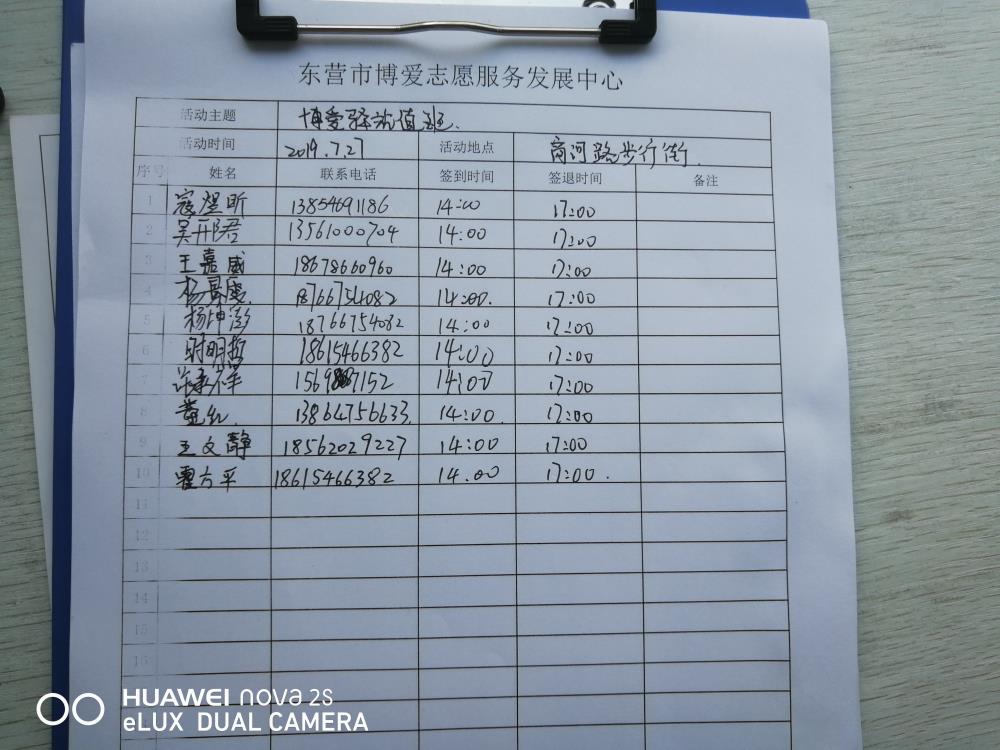 东营市博爱志愿服务发展中心
活动主题 博爱驿站值班.
活动时间 2019.7.27 活动地点 商河路步行街.
序号 姓名 联系电话 签到时间 签退时间 备注
1 寇煜昕 13854691186 14:00 17:00
2 吴邢君 13561000704 14:00 17:00
3 王嘉威 18678660960 14:00 17:00
4 杨 18766754082 14:00. 17:00
5 杨坤澎 18766754082 14:00 17:00
6 时明哲 18615466382 14:00 17:00
7 7152 14:00 17:00
8 董红. 13864756633. 14:00. 17:00
9 王文静 18562029227 14:00 17:00
10 霍方平 18615466382 14.00 17:00.
11
12
13
14
15
16
HUAWEI nova 2s
eLUX DUAL CAMERA